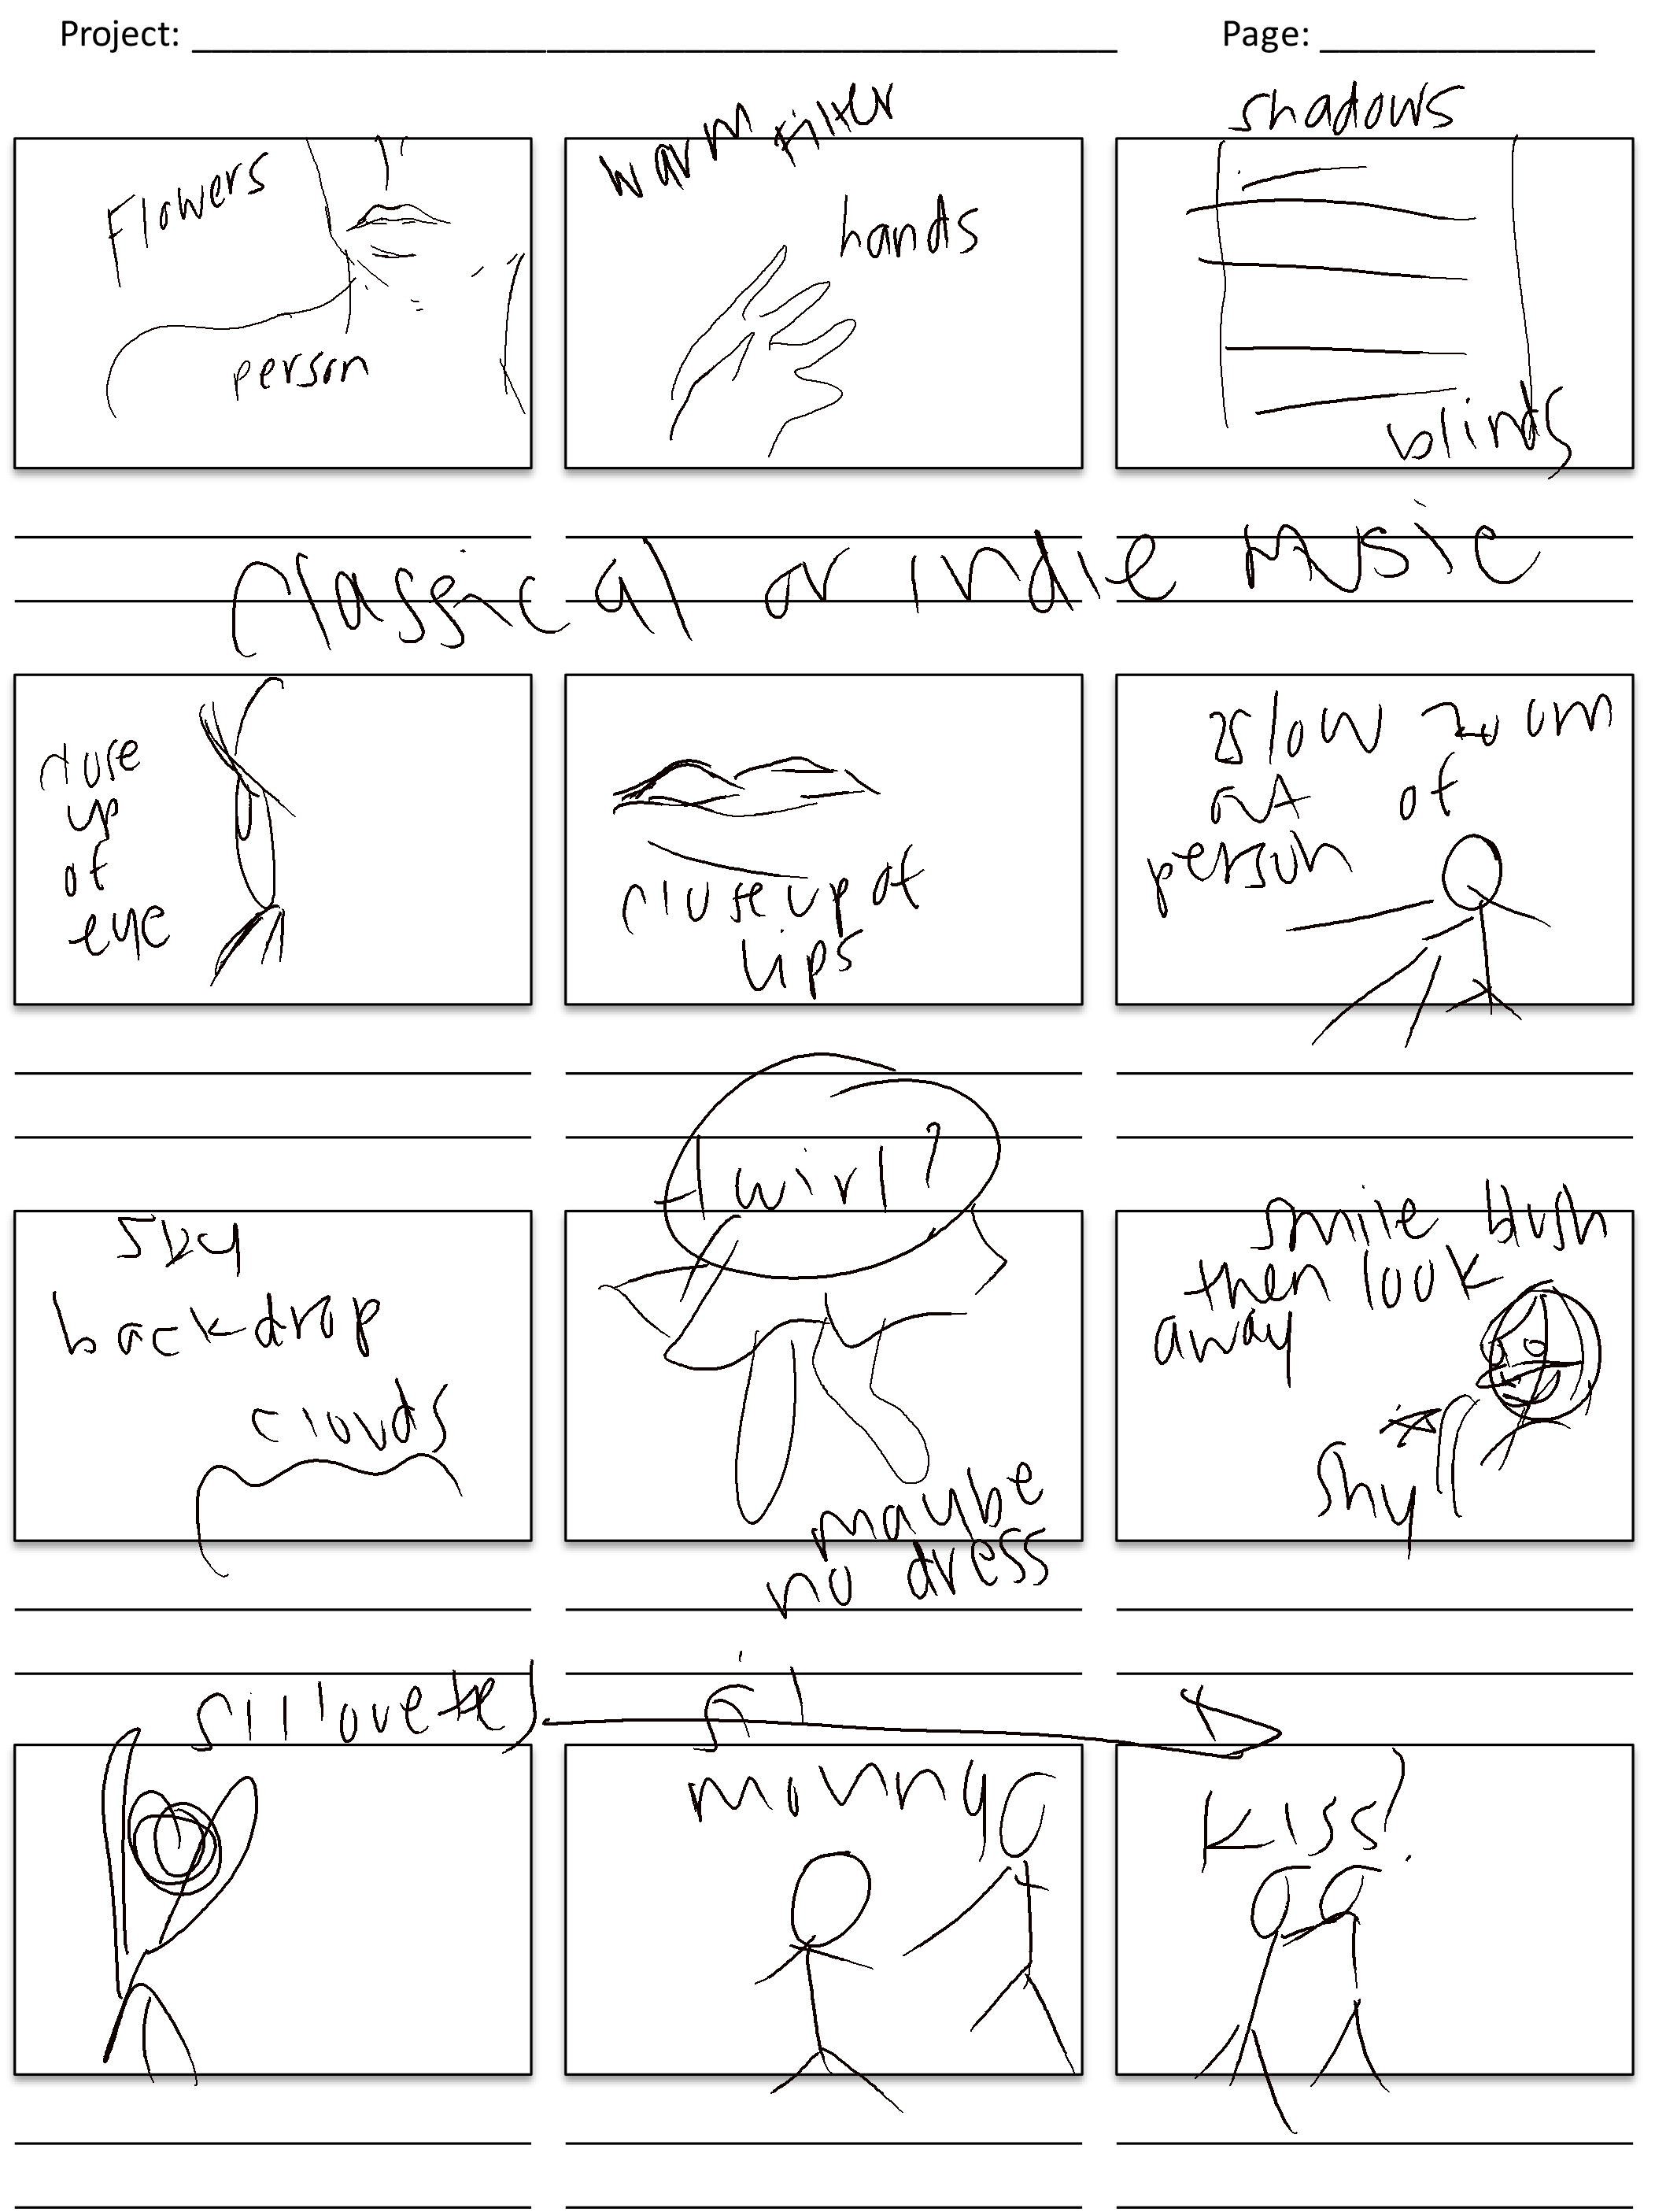 Project: Page:
warm filter
shadows
Flowers
hands
person
blinds
classical or indie music
close
up
of
eye
close up of
lips
slow zoom
out of
person
twirl?
sky
backdrop
clouds
maybe
no dress
smile blush
then look
away
shy
sillouettes
moving
kiss?